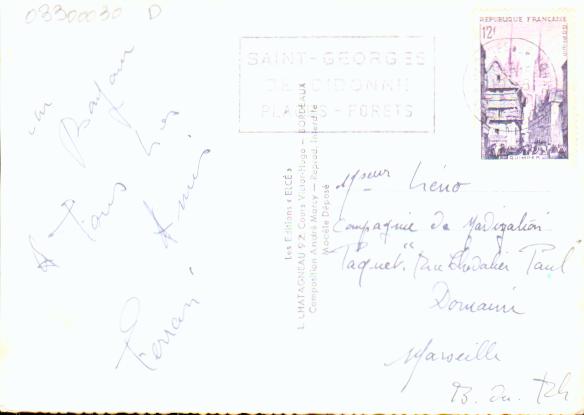 03300030 D
un Bonjour
A Tous les
Amis
Ferrari
SAINT-GEORGES
DE DIDONNE
PLAGES - FORETS
REPUBLIQUE FRANÇAISE
12f
QUIMPER
Les Editions « ELCÉ »
L. CHATAGNEAU 92, Cours Victor-Hugo — BORDEAUX
Composition André Marcy — Reprod. Interdite
Modèle Déposé
Mseur
Compagnie de Navigation
"Paquet" Rue Chevalier Paul
Domaine
Marseille
B. du Rh